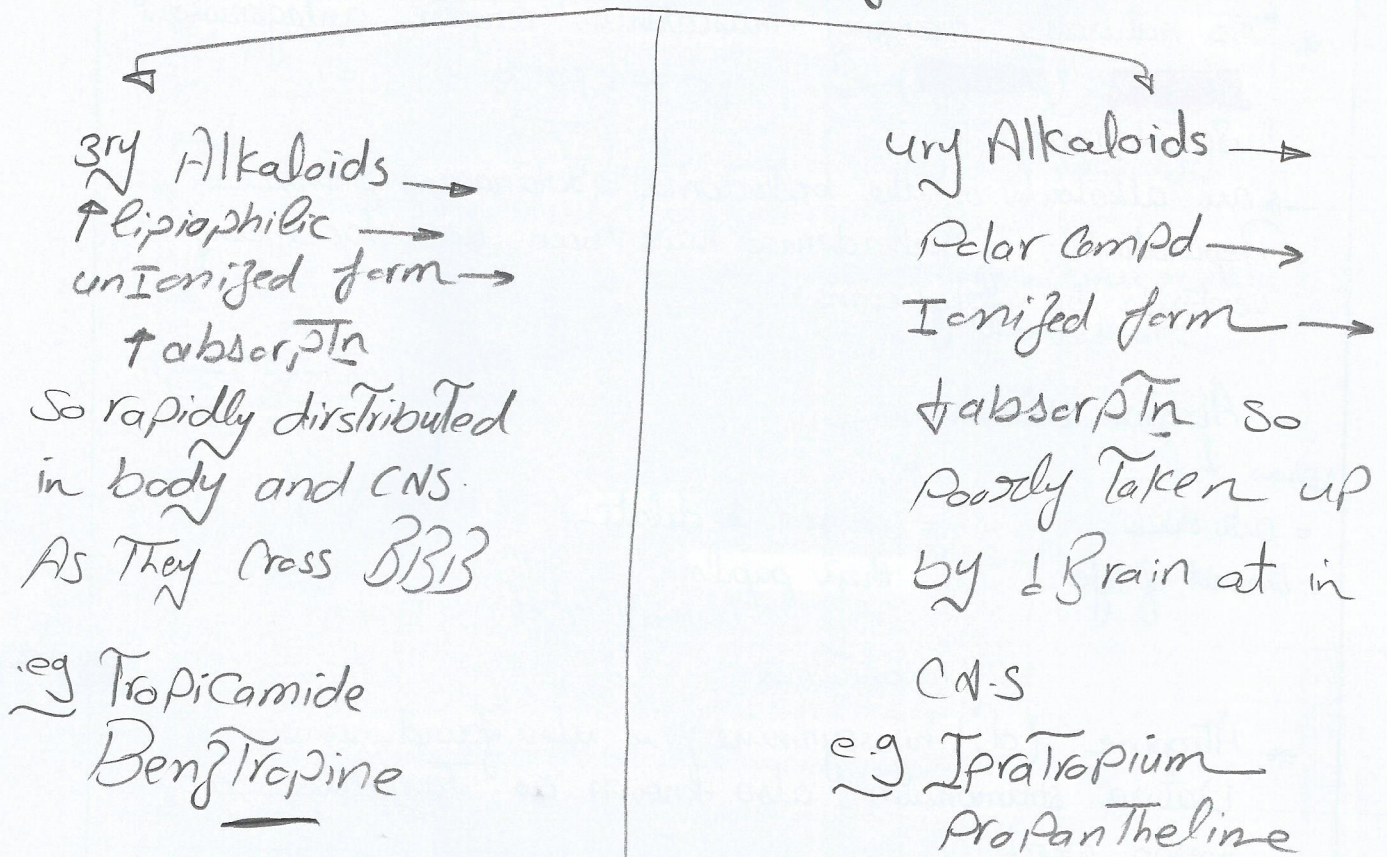 3ry Alkaloids →
↑ lipiophilic →
unIonized form →
↑ absorpTn
So rapidly dirsTribuTed
in body and CNS.
As They Cross BBB
.eg TroPiCamide
BenzTropine
4ry Alkaloids →
Polar ComPd →
Ionized form →
↓ absorpTn so
Poorly Taken up
by Brain at in
CNS
e.g IpraTropium
ProPanTheline